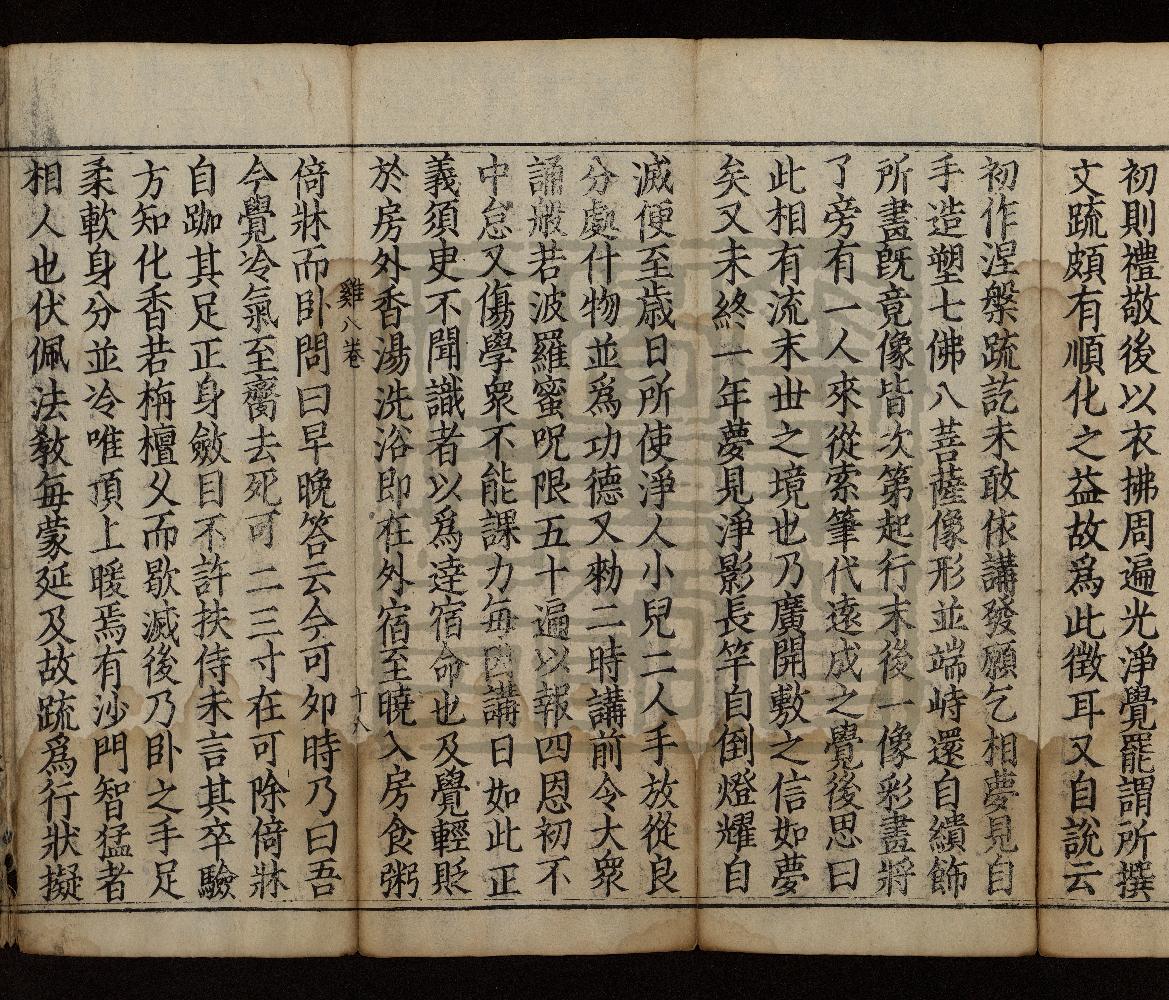 初則禮敬後以衣拂周遍光淨覺罷謂所撰
文疏頗有順化之益故爲此徵耳又自說云
初作涅槃疏訖未敢依講發願乞相夢見自
手造塑七佛八菩薩像形並端峙還自繢飾
所畫旣竟像皆次第起行末後一像彩畫將
了旁有一人來從索筆代遠成之覺後思曰
此相有流末世之境也乃廣開敷之信如夢
矣又未終一年夢見淨影長竿自倒燈耀自
滅便至歲日所使淨人小兒二人手放從良
分處什物並爲功德又勑二時講前令大衆
誦般若波羅蜜呪限五十遍以報四恩初不
中怠又傷學衆不能課力每因講日如此正
義須臾不聞識者以爲達宿命也及覺輕貶
於房外香湯洗浴即在外宿至曉入房食粥
雞八卷 十八
倚牀而卧問曰早晚答云今可夘時乃曰吾
今覺冷氣至齎去死可二三寸在可除倚牀
自跏其足正身斂目不許扶侍未言其卒驗
方知化香若栴檀久而歇滅後乃卧之手足
柔軟身分並冷唯頂上暖焉有沙門智猛者
相人也伏佩法教每蒙延及故疏爲行狀擬